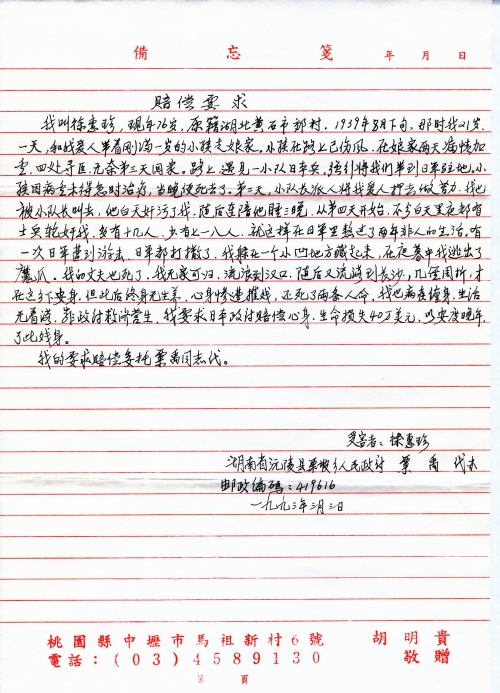 備忘箋 年 月 日
赔偿要求
我叫徐惠珍，现年76岁，原籍湖北黄石市郊村，1939年8月下旬，那时我21岁，
一天，和我爱人带着刚满一岁的小孩走娘家。小孩在路上已伤风，在娘家两天病情加
重，四处寻医，无奈第三天回家。路上，遇见一小队日本兵，强行将我们带到日军驻地。小
孩因病重未得急时治疗，当晚便死去了。第三天，小队长派人将我爱人押去做苦力，我也
被小队长叫去，他白天奸污了我，随后连陪他睡三晚，从第四天开始，不管白天黑夜都有
士兵轮奸我，多有十几人，少有七—八人，就这样在日军里熬过了两年非人的生活，有
一次日军遭到游击，日军都打撒了，我躲在一个小凹地方藏起来，在夜幕中我逃出了
魔爪，我的丈夫也死了，我无家可归，流浪到汉口，随后又流落到长沙，几经周折，才
在乡下安身，但此后终身无生养，心身惨遭摧残，还死了两条人命，我也病疾缠身，生活
无着落，靠政府救济营生，我要求日本政府赔偿心身、生命损失40万美元，以安度晚年，
了此残身。
我的要求赔偿委托 禹同志代。
受害者：徐惠珍
湖南省沅陵县 坡乡人民政府 禹 代书
邮政编码：419616
一九九三年三月三日
桃園縣中壢市馬祖新村6號 胡明貴
電話：(03)4589130 敬贈
第 頁